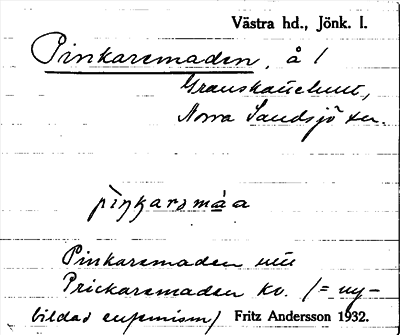 Västra hd., Jönk. l.
Pinkarsmaden, å /
Norra Sandsjö sn.
pinkarsmáa
Pinkarsmaden
Prickarsmaden kv. /= ny-
bildad eufemism/ Fritz Andersson 1932.